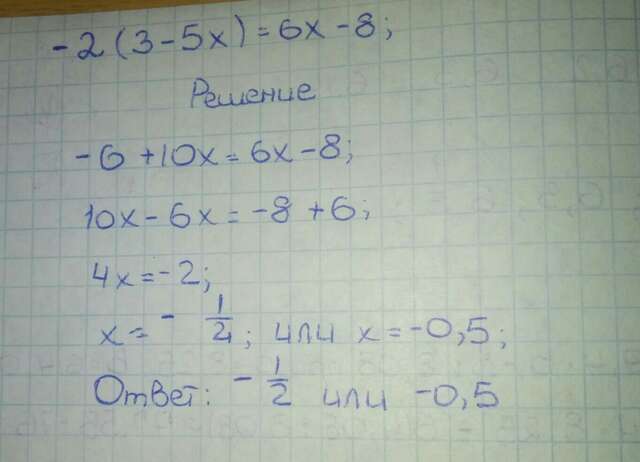 -2(3-5x)=6x-8;
Решение
-6+10x=6x-8;
10x-6x=-8+6;
4x=-2;
x=-1/2; или x=-0,5;
Ответ: -1/2 или -0,5